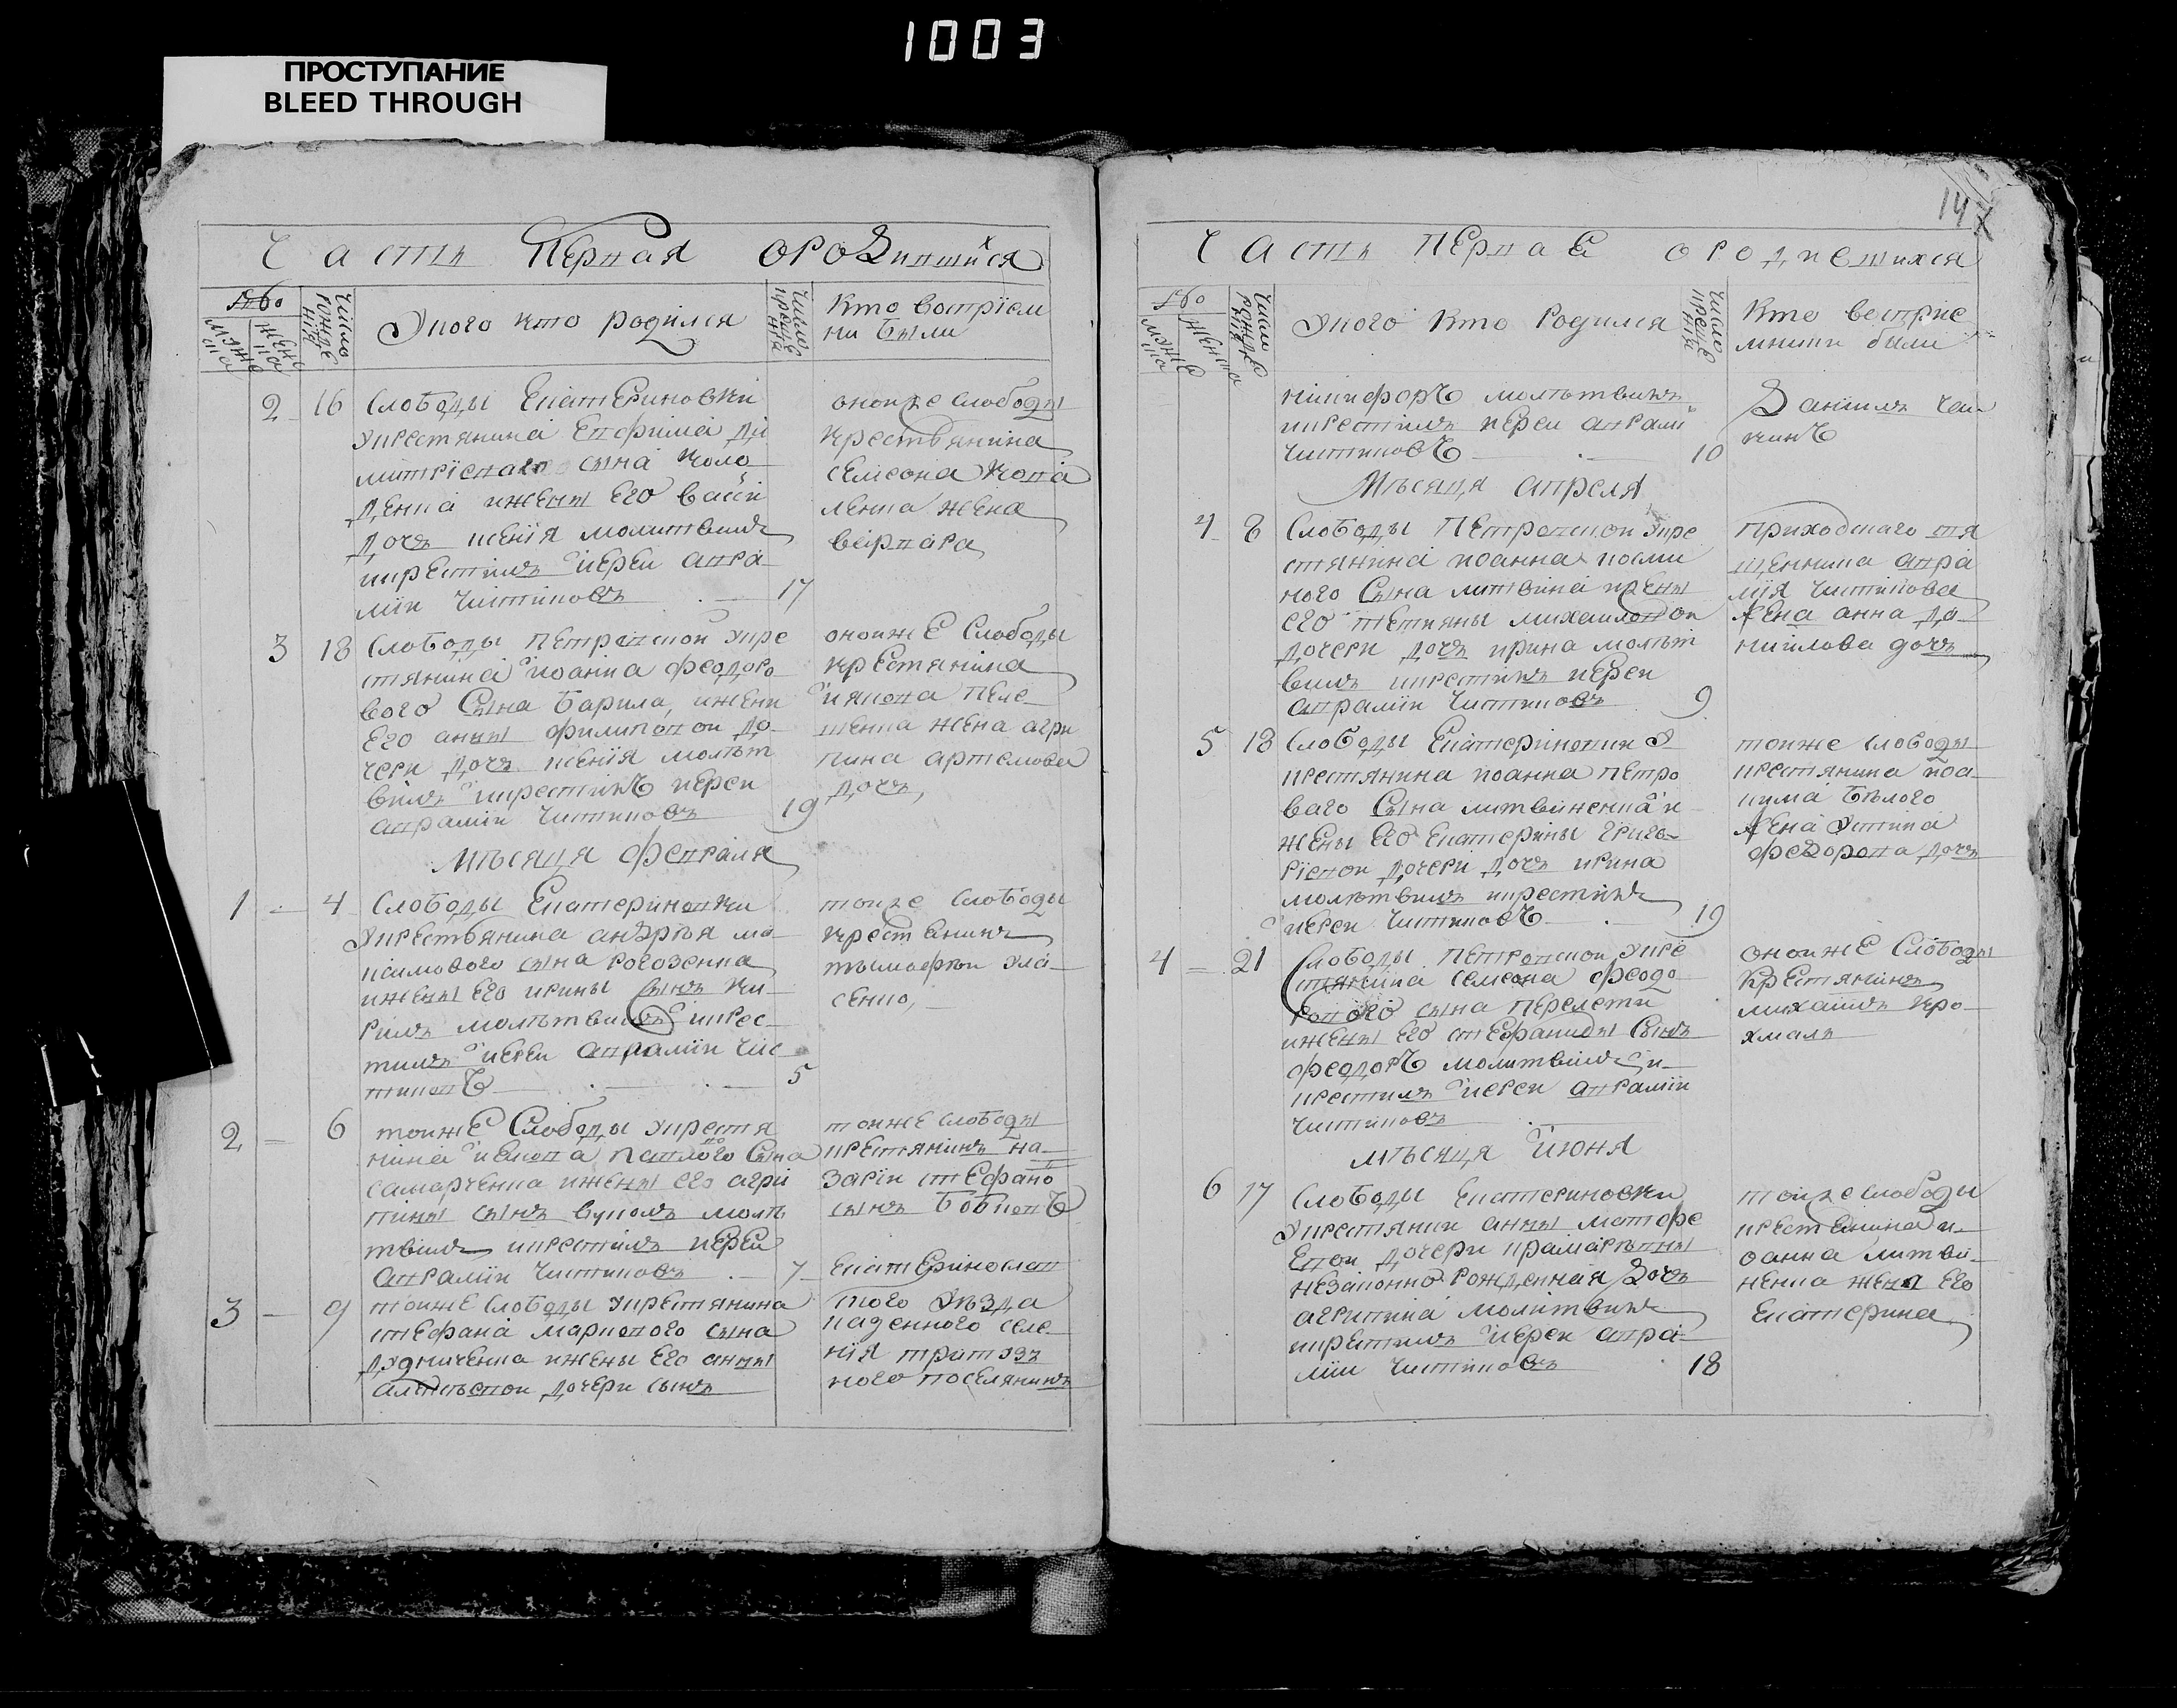 1003
ПРОСТУПАНИЕ
BLEED THROUGH
Часть Первая о родившихся
Число рождения
У кого кто родился
Число крещения
Кто восприем
ники были
2 16 Слободы Екатериновки
у крестянина Евфима Ди
митрiеваго сына Коло
денка и жены его
дочь Ксенiя молитвилъ
и крестилъ iерей Авра
мiй Чистиковъ 17
оной же слободы
крестьянина
Семеона
ленка жена
варвара
3 18 Слободы Петровской у кре
стянина iоанна феодоро
вого сына Барила, и жени
его анны филиповой до
чери дочь Ксенiя молит
вилъ и крестилъ iерей
аврамiй Чистиковъ 19
оной же Слободы
крестянина
iякова Пеле
шенка жена агри
пина артемова
дочь,
Мѣсяця февраля
1 4 Слободы Екатериновки
у крестьянина андрѣя ма
ксимового сына рогозенка
и жены его ирины сынъ Ки
рилъ молитвилъ и крес
тилъ iерей аврамiй Чис
тиковъ 5
тойже слободы
крестянинъ
тымофѣй Ула
сенко,
2 6 тойже Слободы у крестя
нина iякова Павлового сына
самарченка и жены его агри
пины сынъ вуколъ моли
твилъ и крестилъ iерей
аврамiй Чистиковъ 7
тойже слободы
крестянинъ на
зарiй стефано
сынъ Бовковъ
3 9 тойже слободы у крестянина
стефана маркового сына
дудниченка и жены его анны
алексѣевой дочери сынъ
Екатеринослав
ского уѣзда
казенного селе
нiя тритуз
ного поселянинъ
147
Часть Первая о родившихся
Число рождения
У кого кто родился
Число крещения
Кто восприе
мники были
никифоръ молитвилъ
и крестилъ iерей аврамiй
Чистиковъ 10
Данiилъ Чай
кинъ
Мѣсяця апреля
4 8 Слободы Петровской у кре
стянина иоанна
ного сына литвина и жены
его тетяны михайловой
дочери дочь ирина молит
вилъ и крестилъ iерей
аврамiй Чистиковъ 9
приходскаго свя
щенника авра
мiя Чистикова
жена анна да
ниилова дочь
5 18 Слободы Екатериновки у
крестянина иоанна петро
ваго сына литвиненка и
жены его Екатерины григо
рiевой дочери дочь ирина
молитвилъ и крестилъ
iерей Чистиковъ 19
тойже слободы
крестянина иоа
кима Бѣлого
жена Устина
федорова дочь
4 21 Слободы Петровской у кре
стянина Семеона феодо
рового сына Перелети
и жены его стефаниды сынъ
феодоръ молитвилъ и
крестилъ iерей аврамiй
Чистиковъ
оной же Слободы
Крестянинъ
михаилъ Кро
хмаль
мѣсяця iюня
6 17 Слободы Екатериновки
у крестянки анны
евой дочери
незаконно рожденная дочь
агрипина молитвилъ
и крестилъ iерей авра
мiй Чистиковъ 18
тойже слободы
крестянина и
оанна литви
ненка жена его
Екатерина